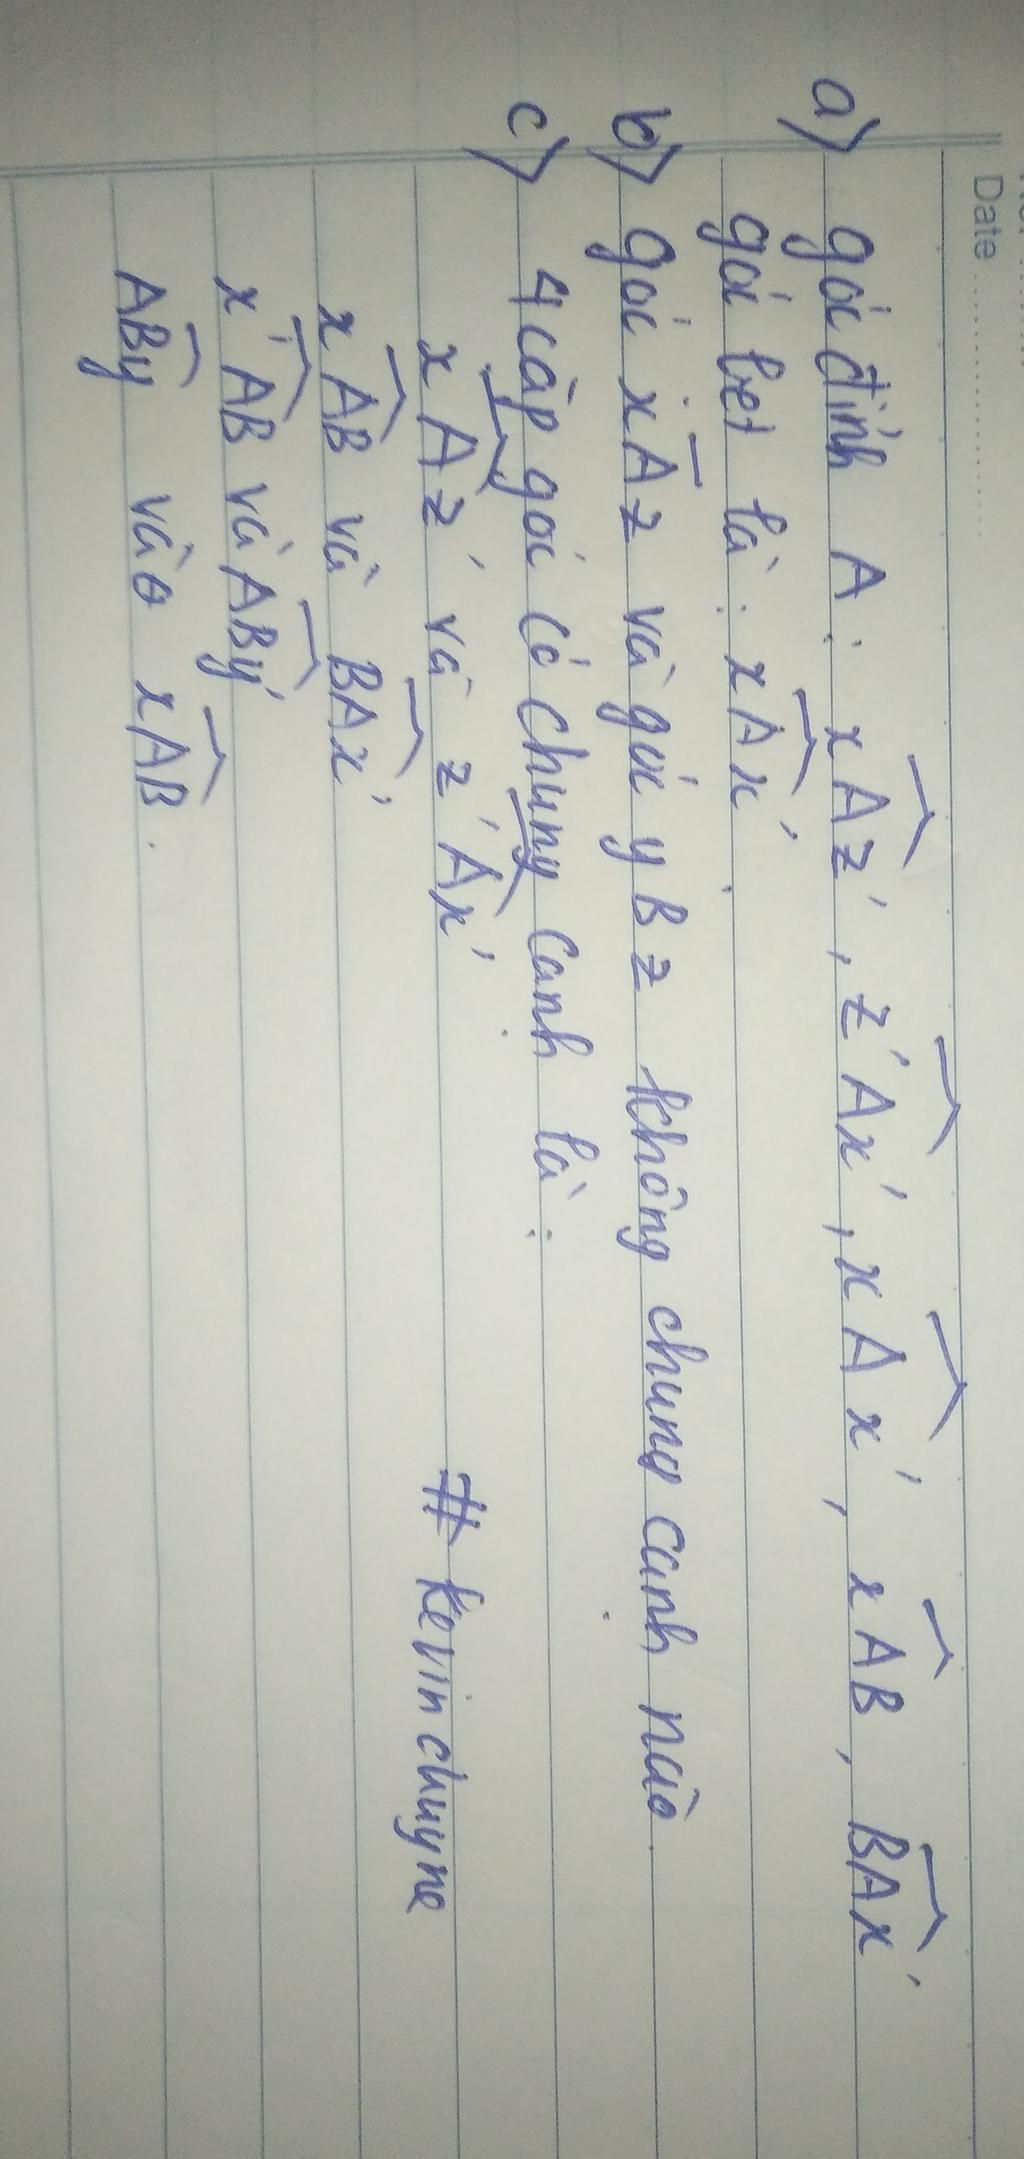 Date
a) góc đỉnh A : xAz', z'Ax', xAx', xAB, BAx'
góc bẹt là : xAx'
b) góc xAz và góc yBz không chung cạnh nào.
c) 4 cặp góc có chung cạnh là :
xAz' và z'Ax'
xAB và BAx'
x'AB và ABy'
# Kevinchuyne
ABy vào xAB.